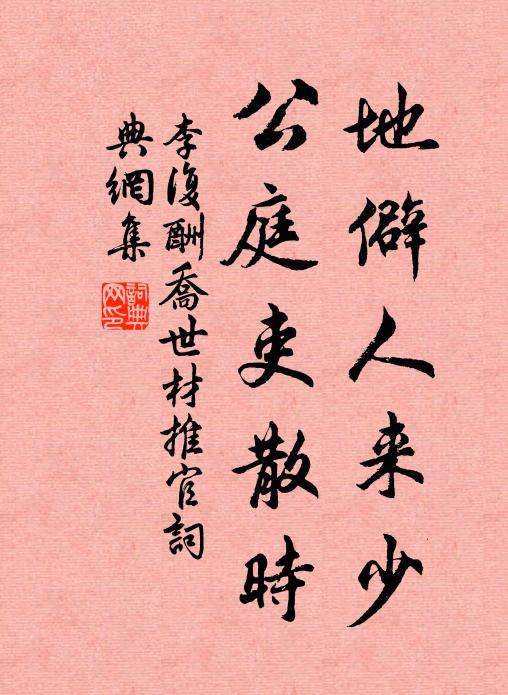 地僻人来少
公庭吏散時
李復酬喬世材推官詞
典網集
詞典网印